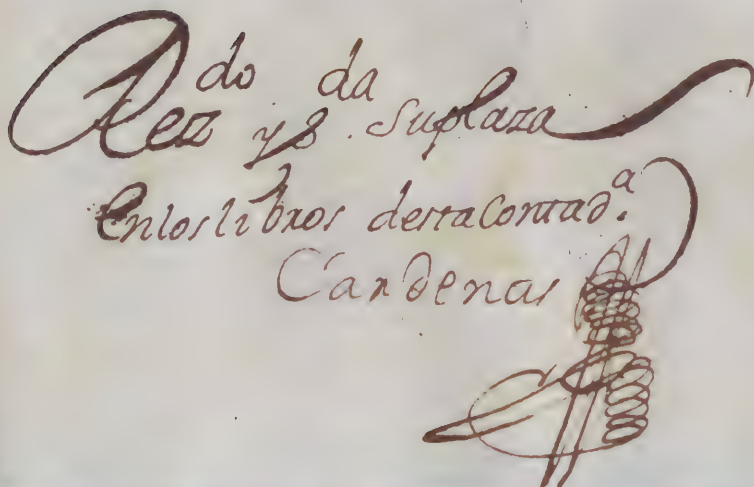 Rez^do y s^da su plaza
En los libros desta Contad.^a
Cardenas